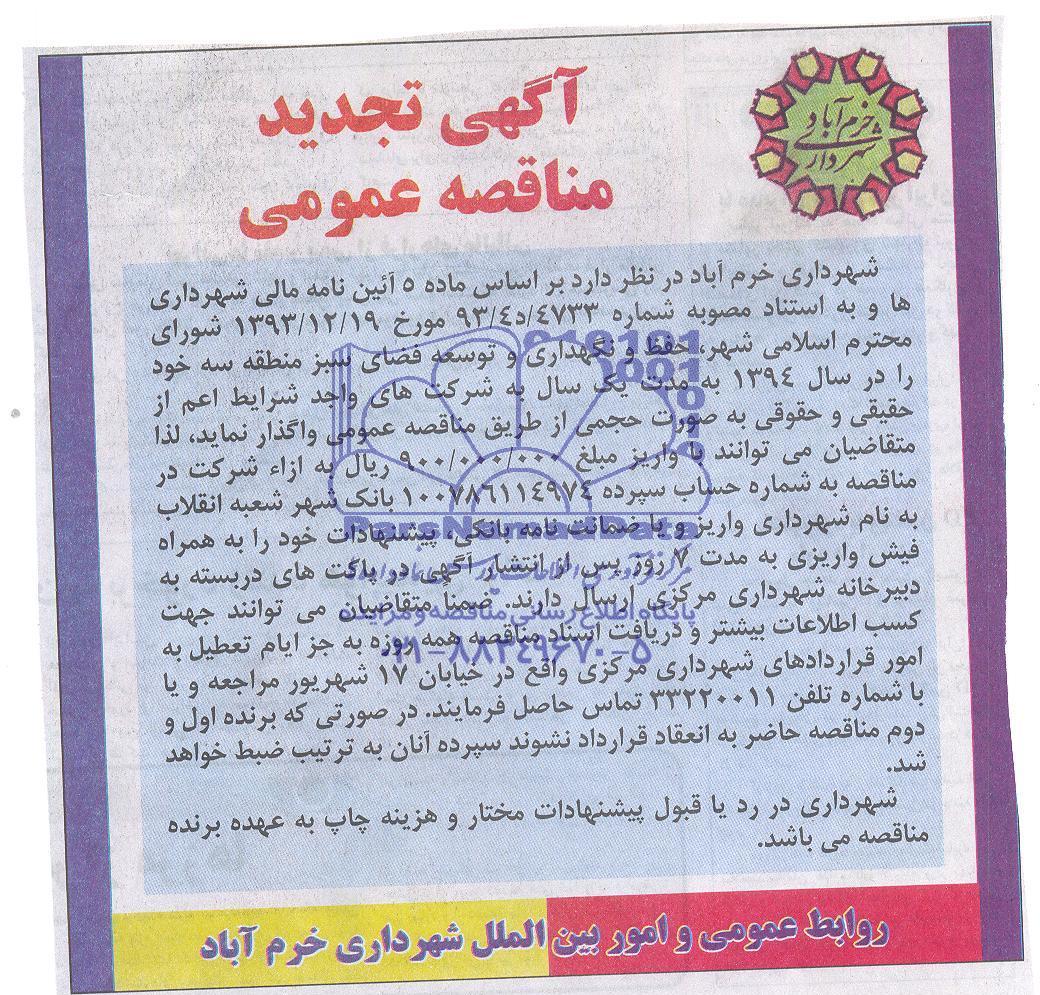 خرم آباد
شهرداری
آگهی تجدید
مناقصه عمومی
شهرداری خرم آباد در نظر دارد بر اساس ماده ٥ آئین نامه مالی شهرداری
ها و به استناد مصوبه شماره ٩٣/٤د/٤٧٣٣ مورخ ١٣٩٣/١٢/١٩ شورای
محترم اسلامی شهر، حفظ و نگهداری و توسعه فضای سبز منطقه سه خود
را در سال ١٣٩٤ به مدت یک سال به شرکت های واجد شرایط اعم از
حقیقی و حقوقی به صورت حجمی از طریق مناقصه عمومی واگذار نماید، لذا
متقاضیان می توانند با واریز مبلغ ٩٠٠/٠٠٠/٠٠٠ ریال به ازاء شرکت در
مناقصه به شماره حساب سپرده ١٠٠٧٨٦١١٤٩٧٤ بانک شهر شعبه انقلاب
به نام شهرداری واریز و یا ضمانت نامه بانکی، پیشنهادات خود را به همراه
فیش واریزی به مدت ٧ روز پس از انتشار آگهی در پاکت های دربسته به
دبیرخانه شهرداری مرکزی ارسال دارند. ضمنا متقاضیان می توانند جهت
کسب اطلاعات بیشتر و دریافت اسناد مناقصه همه روزه به جز ایام تعطیل به
امور قراردادهای شهرداری مرکزی واقع در خیابان ١٧ شهریور مراجعه و یا
با شماره تلفن ٣٣٢٢٠٠١١ تماس حاصل فرمایند. در صورتی که برنده اول و
دوم مناقصه حاضر به انعقاد قرارداد نشوند سپرده آنان به ترتیب ضبط خواهد
شد.
شهرداری در رد یا قبول پیشنهادات مختار و هزینه چاپ به عهده برنده
مناقصه می باشد.
روابط عمومی و امور بین الملل شهرداری خرم آباد
ParsNamadData
پایگاه اطلاع رسانی مناقصه و مزایده
٠٢١-٨٨٣٤٩٦٧٠-٥